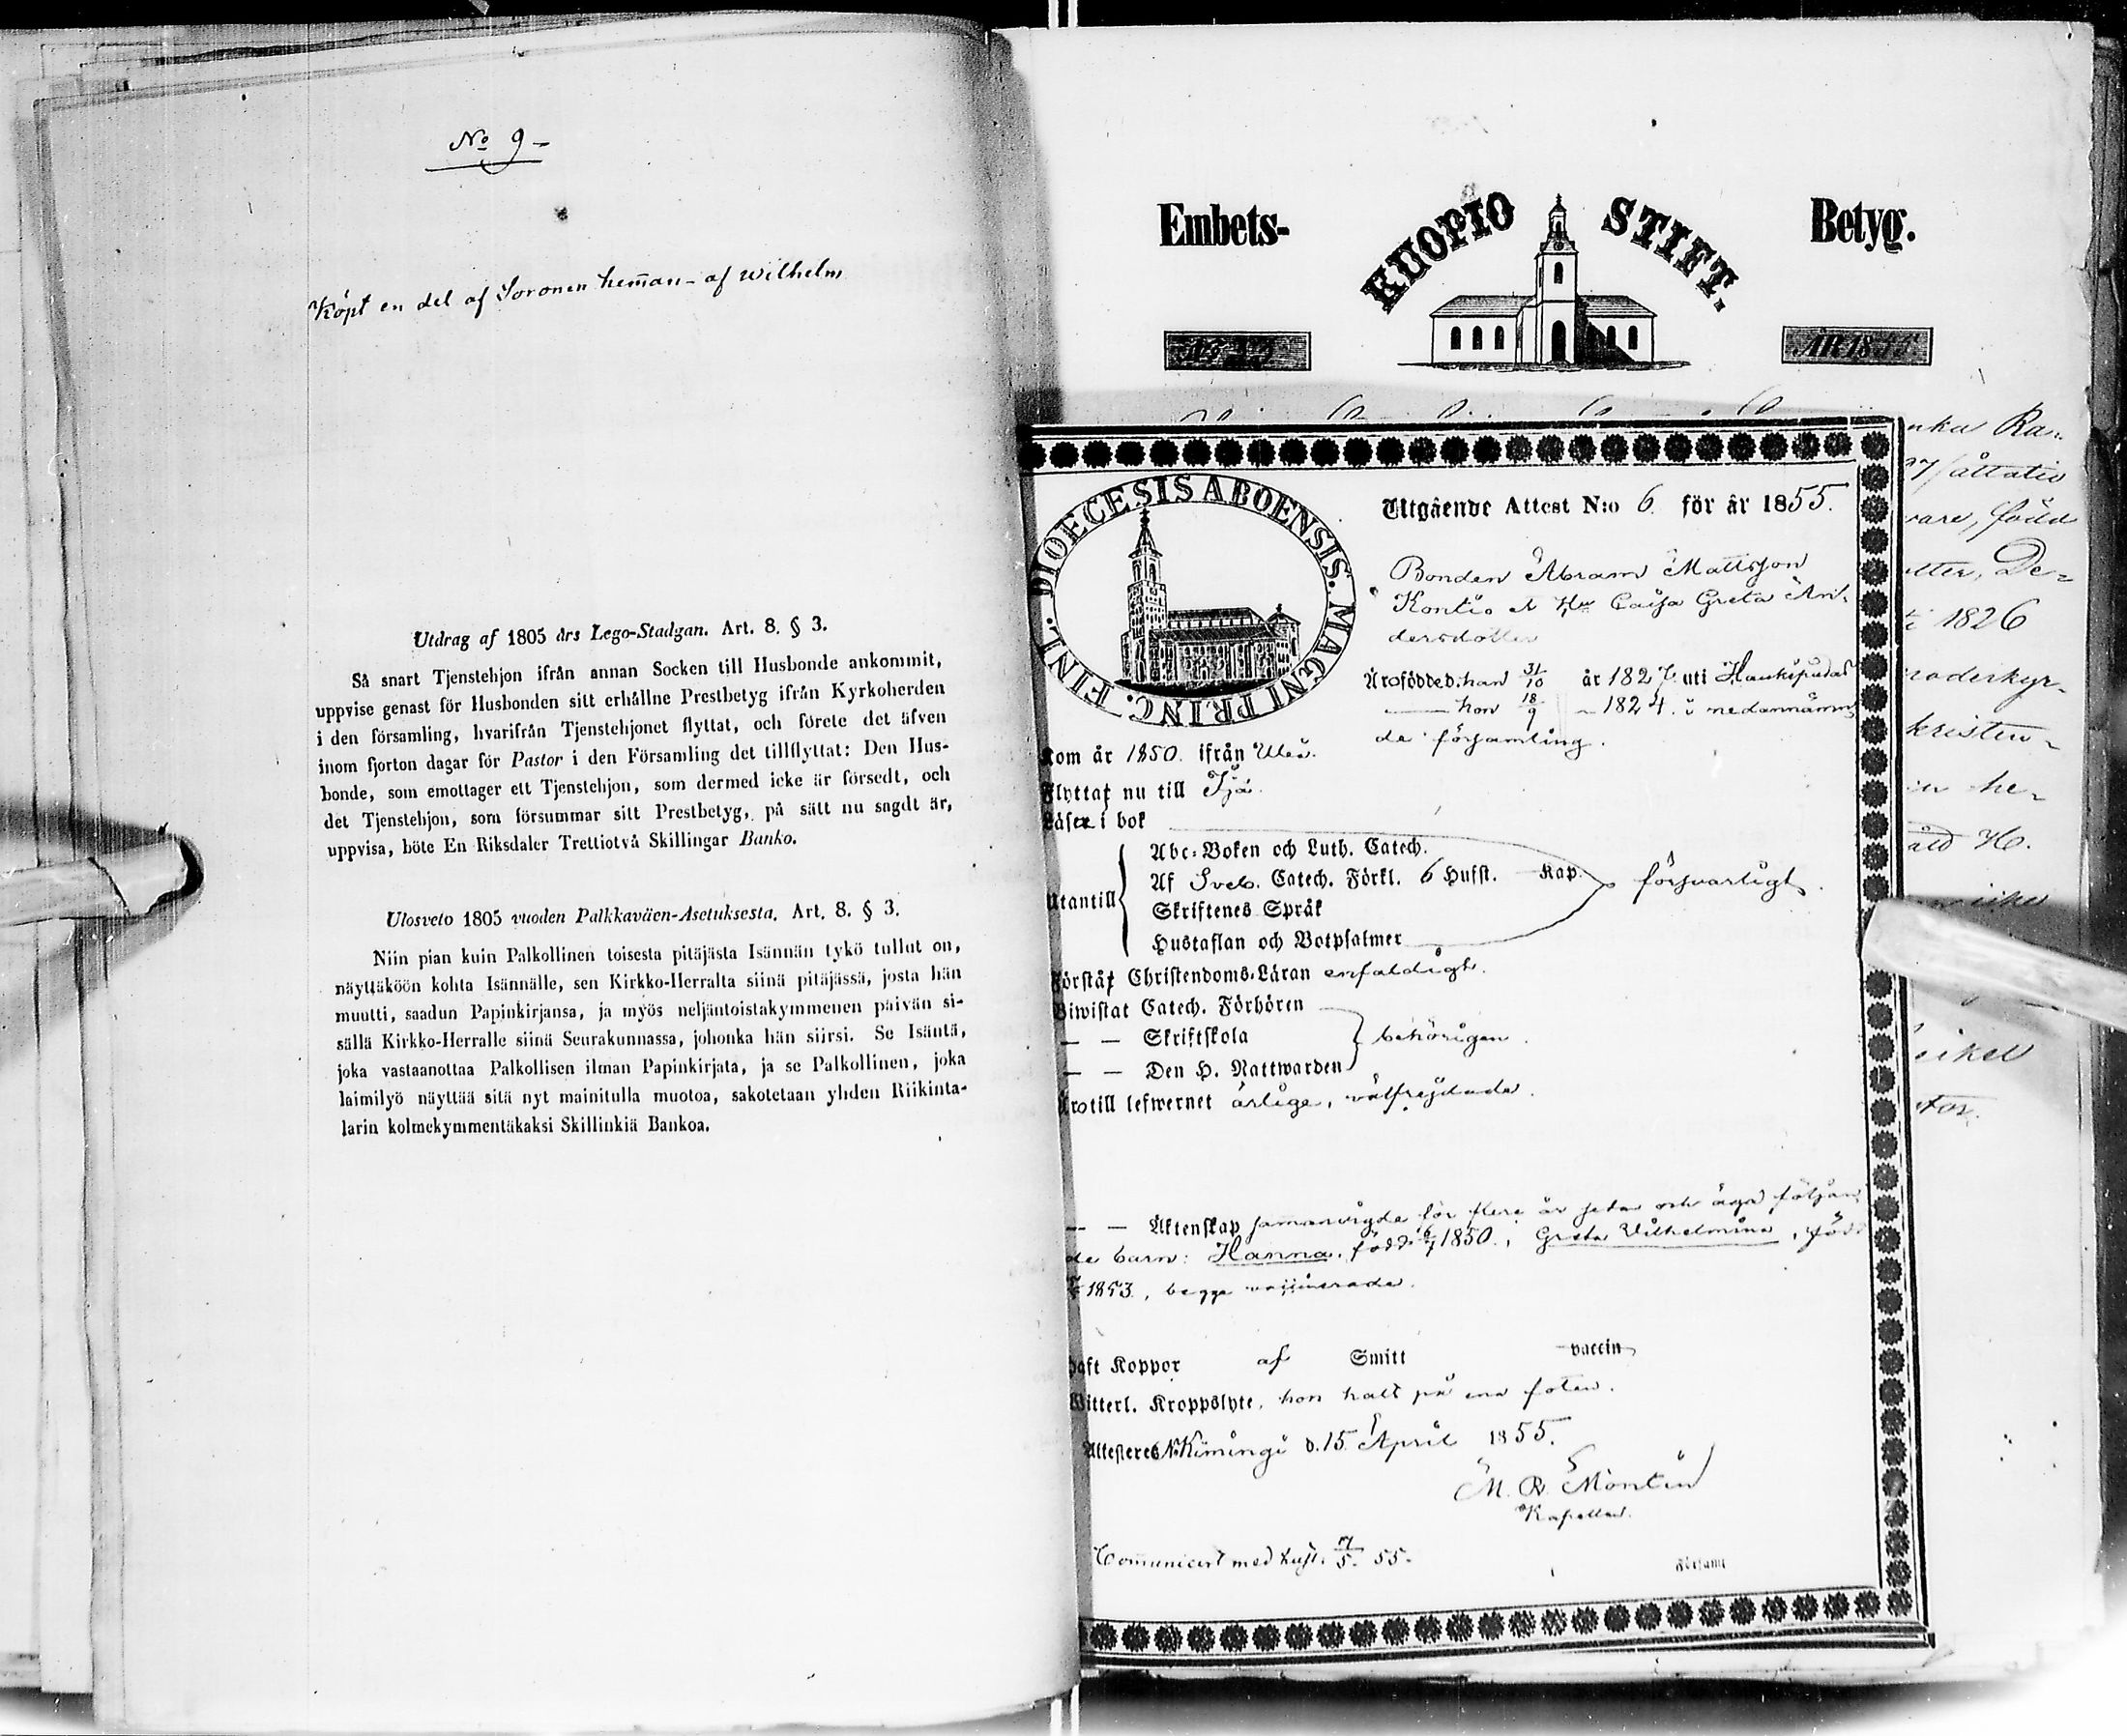 No 9-
Köpt en del af Soronen heman- af Wilhelm
Utdrag af 1805 års Lego-Stadgan. Art. 8. § 3.
Så snart Tjenstehjon ifrån annan Socken till Husbonde ankommit,
uppvise genast för Husbonden sitt erhållne Prestbetyg ifrån Kyrkoherden
i den församling, hvarifrån Tjenstehjonet flyttat, och förete det äfven
inom fjorton dagar för Pastor i den Församling det tillflyttat: Den Hus-
bonde, som emottager ett Tjenstehjon, som dermed icke är försedt, och
det Tjenstehjon, som försummar sitt Prestbetyg, på sätt nu sagdt är,
uppvisa, böte En Riksdaler Trettiotvå Skillingar Banko.
Ulosveto 1805 vuoden Palkkaväen-Asetuksesta. Art. 8. § 3.
Niin pian kuin Palkollinen toisesta pitäjästa Isännän tykö tullut on,
näyttäköön kohta Isännälle, sen Kirkko-Herralta siinä pitäjässä, josta hän
muutti, saadun Papinkirjansa, ja myös neljäntoistakymmenen päivän si-
sällä Kirkko-Herralle siinä Seurakunnassa, johonka hän siirsi. Se Isäntä,
joka vastaanottaa Palkollisen ilman Papinkirjata, ja se Palkollinen, joka
laimilyö näyttää sitä nyt mainitulla muotoa, sakotetaan yhden Riikinta-
larin kolmekymmentäkaksi Skillinkiä Bankoa.
Embets- KUOPIO STIFT. Betyg.
ÅR 1855
nka Ra-
åttatio
vare, född
otter, De-
1826
kristen-
he-
DIOECESIS ABOENSIS. MAGNI PRINC. FINL.
Utgående Attest N:o 6. för år 1855.
Bonden Abram Mattsson
Kontio et Hu Caisa Greta An-
dersdotter
Äro födde d: han 31/10 år 1827 uti Haukipudas
— hon 18/9 - 1824. i nedannämn
de församling.
Kom år 1850. ifrån Uleå.
Flyttat nu till Ijo.
Läser i bok
Utantill
Abc-Boken och Luth. Catech.
Af Sveb. Catech. Förkl. 6 Hufst. Kap. försvarligt.
Skriftenes Språk
Hustaflan och Botpsalmer
Förståt Christendoms-Läran enfaldigt.
Biwistat Catech. Förhören
— — Skriftskola behörigen.
— — Den H. Nattwarden
Äro till lefwernet ärlige, välfrejdade.
— — Äktenskap sammanvigde för flere år sedan och äga följan
de barn: Hanna, född 1850., Greta Vilhelmina, född
1853., begge vaccinerade.
Haft Koppor af Smitt vaccin
Witterl. Kroppslyte, hon halt på ena foten.
Attesteres N. Kiminge d. 15. April 1855.
M. R. Montin
Kapellan.
Communicert med hust. 5. 55.
Församl